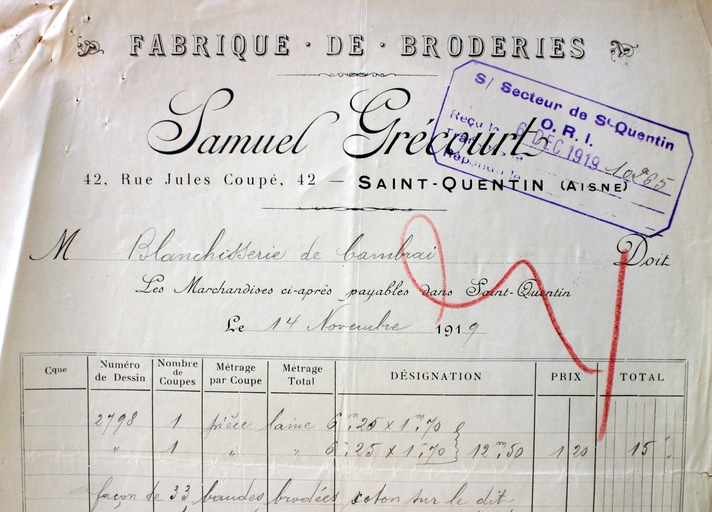 FABRIQUE · DE · BRODERIES
Samuel Grécourt
42, Rue Jules Coupé, 42 — SAINT-QUENTIN (AISNE)
S/ Secteur de St-Quentin
O. R. I.
Reçu le 6 DEC 1919
10285
Répondu le
M Blanchisserie de Cambrai Doit
Les Marchandises ci-après payables dans Saint-Quentin
Le 14 Novembre 1919
Cque Numéro de Dessin Nombre de Coupes Métrage par Coupe Métrage Total DÉSIGNATION PRIX TOTAL
2798 1 pièce laine 6m,25 x 1m,70
" 1 " " 6m,25 x 1m,70 } 12m,50 1 20 15
façon de 33 bandes brodées coton sur le dit